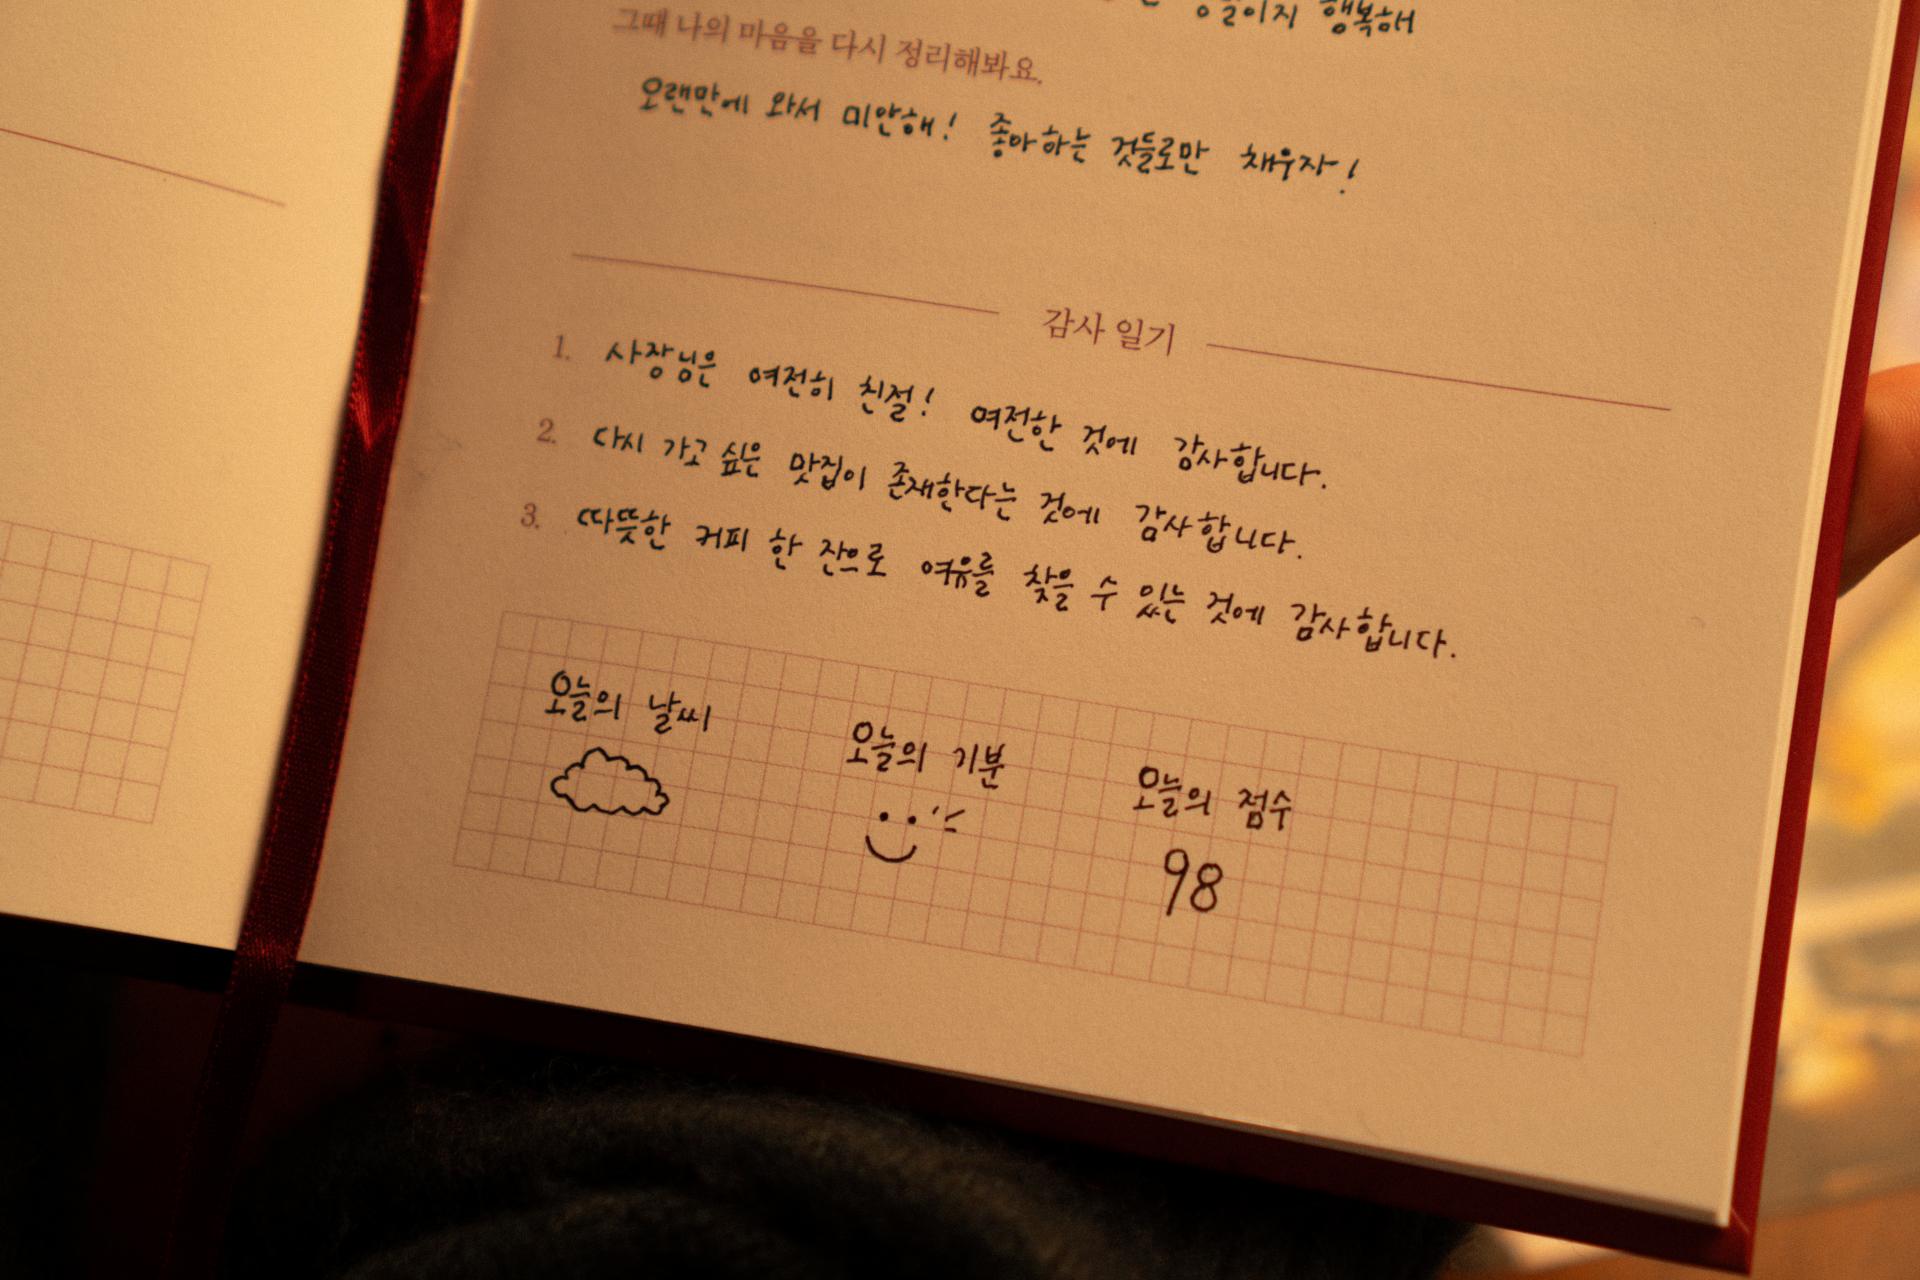 행복해
그때 나의 마음을 다시 정리해봐요.
오랜만에 와서 미안해! 좋아하는 것들로만 채우자!
감사 일기
1. 사장님은 여전히 친절! 여전한 것에 감사합니다.
2. 다시 가고 싶은 맛집이 존재한다는 것에 감사합니다.
3. 따뜻한 커피 한 잔으로 여유를 찾을 수 있는 것에 감사합니다.
오늘의 날씨 오늘의 기분 오늘의 점수
98